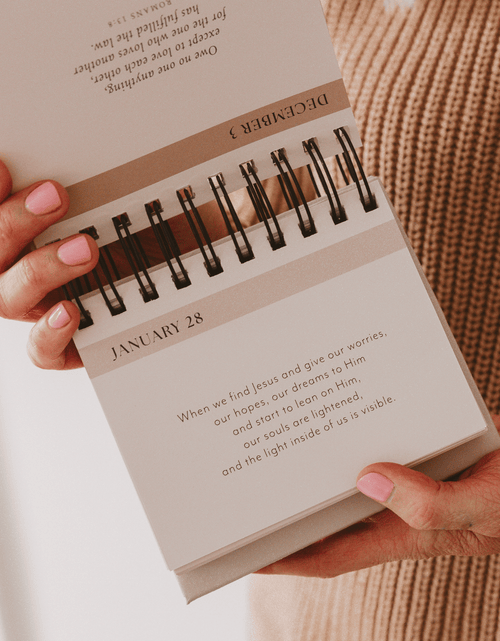 Owe no one anything,
except to love each other,
for the one who loves another
has fulfilled the law.
ROMANS 13:8
DECEMBER 3
JANUARY 28
When we find Jesus and give our worries,
our hopes, our dreams to Him
and start to lean on Him,
our souls are lightened,
and the light inside of us is visible.